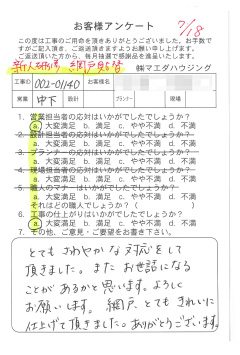 お客様アンケート 7/18
この度は工事のご用命を頂きありがとうございました。お手数で
すがご記入頂き、ご返送頂きますようお願い申し上げます。
ご返送頂いた方から、毎月抽選で感謝品を進呈いたします。
網戸
㈱マエダハウジング
工事ID 002-01140 お客様名
営業 中下 設計 プランナー 現場
1. 営業担当者の応対はいかがでしたでしょうか?
a. 大変満足 b. 満足 c. やや不満 d. 不満
2. 設計担当者の応対はいかがでしたでしょうか?
a. 大変満足 b. 満足 c. やや不満 d. 不満
3. プランナーの応対はいかがでしたでしょうか?
a. 大変満足 b. 満足 c. やや不満 d. 不満
4. 現場担当者の応対はいかがでしたでしょうか?
a. 大変満足 b. 満足 c. やや不満 d. 不満
5. 職人のマナーはいかがでしたでしょうか?
a. 大変満足 b. 満足 c. やや不満 d. 不満
それはどの職人でしょうか? ( )
6. 工事の仕上がりはいかがでしたでしょうか?
a. 大変満足 b. 満足 c. やや不満 d. 不満
7. その他、ご意見・ご要望をお書き下さい。
とても さわやかな 対応をして
頂きました。また お世話になる
ことがあるかと思います。よろしく
お願いします。網戸、とても きれいに
仕上げて頂きました。ありがとうございます。